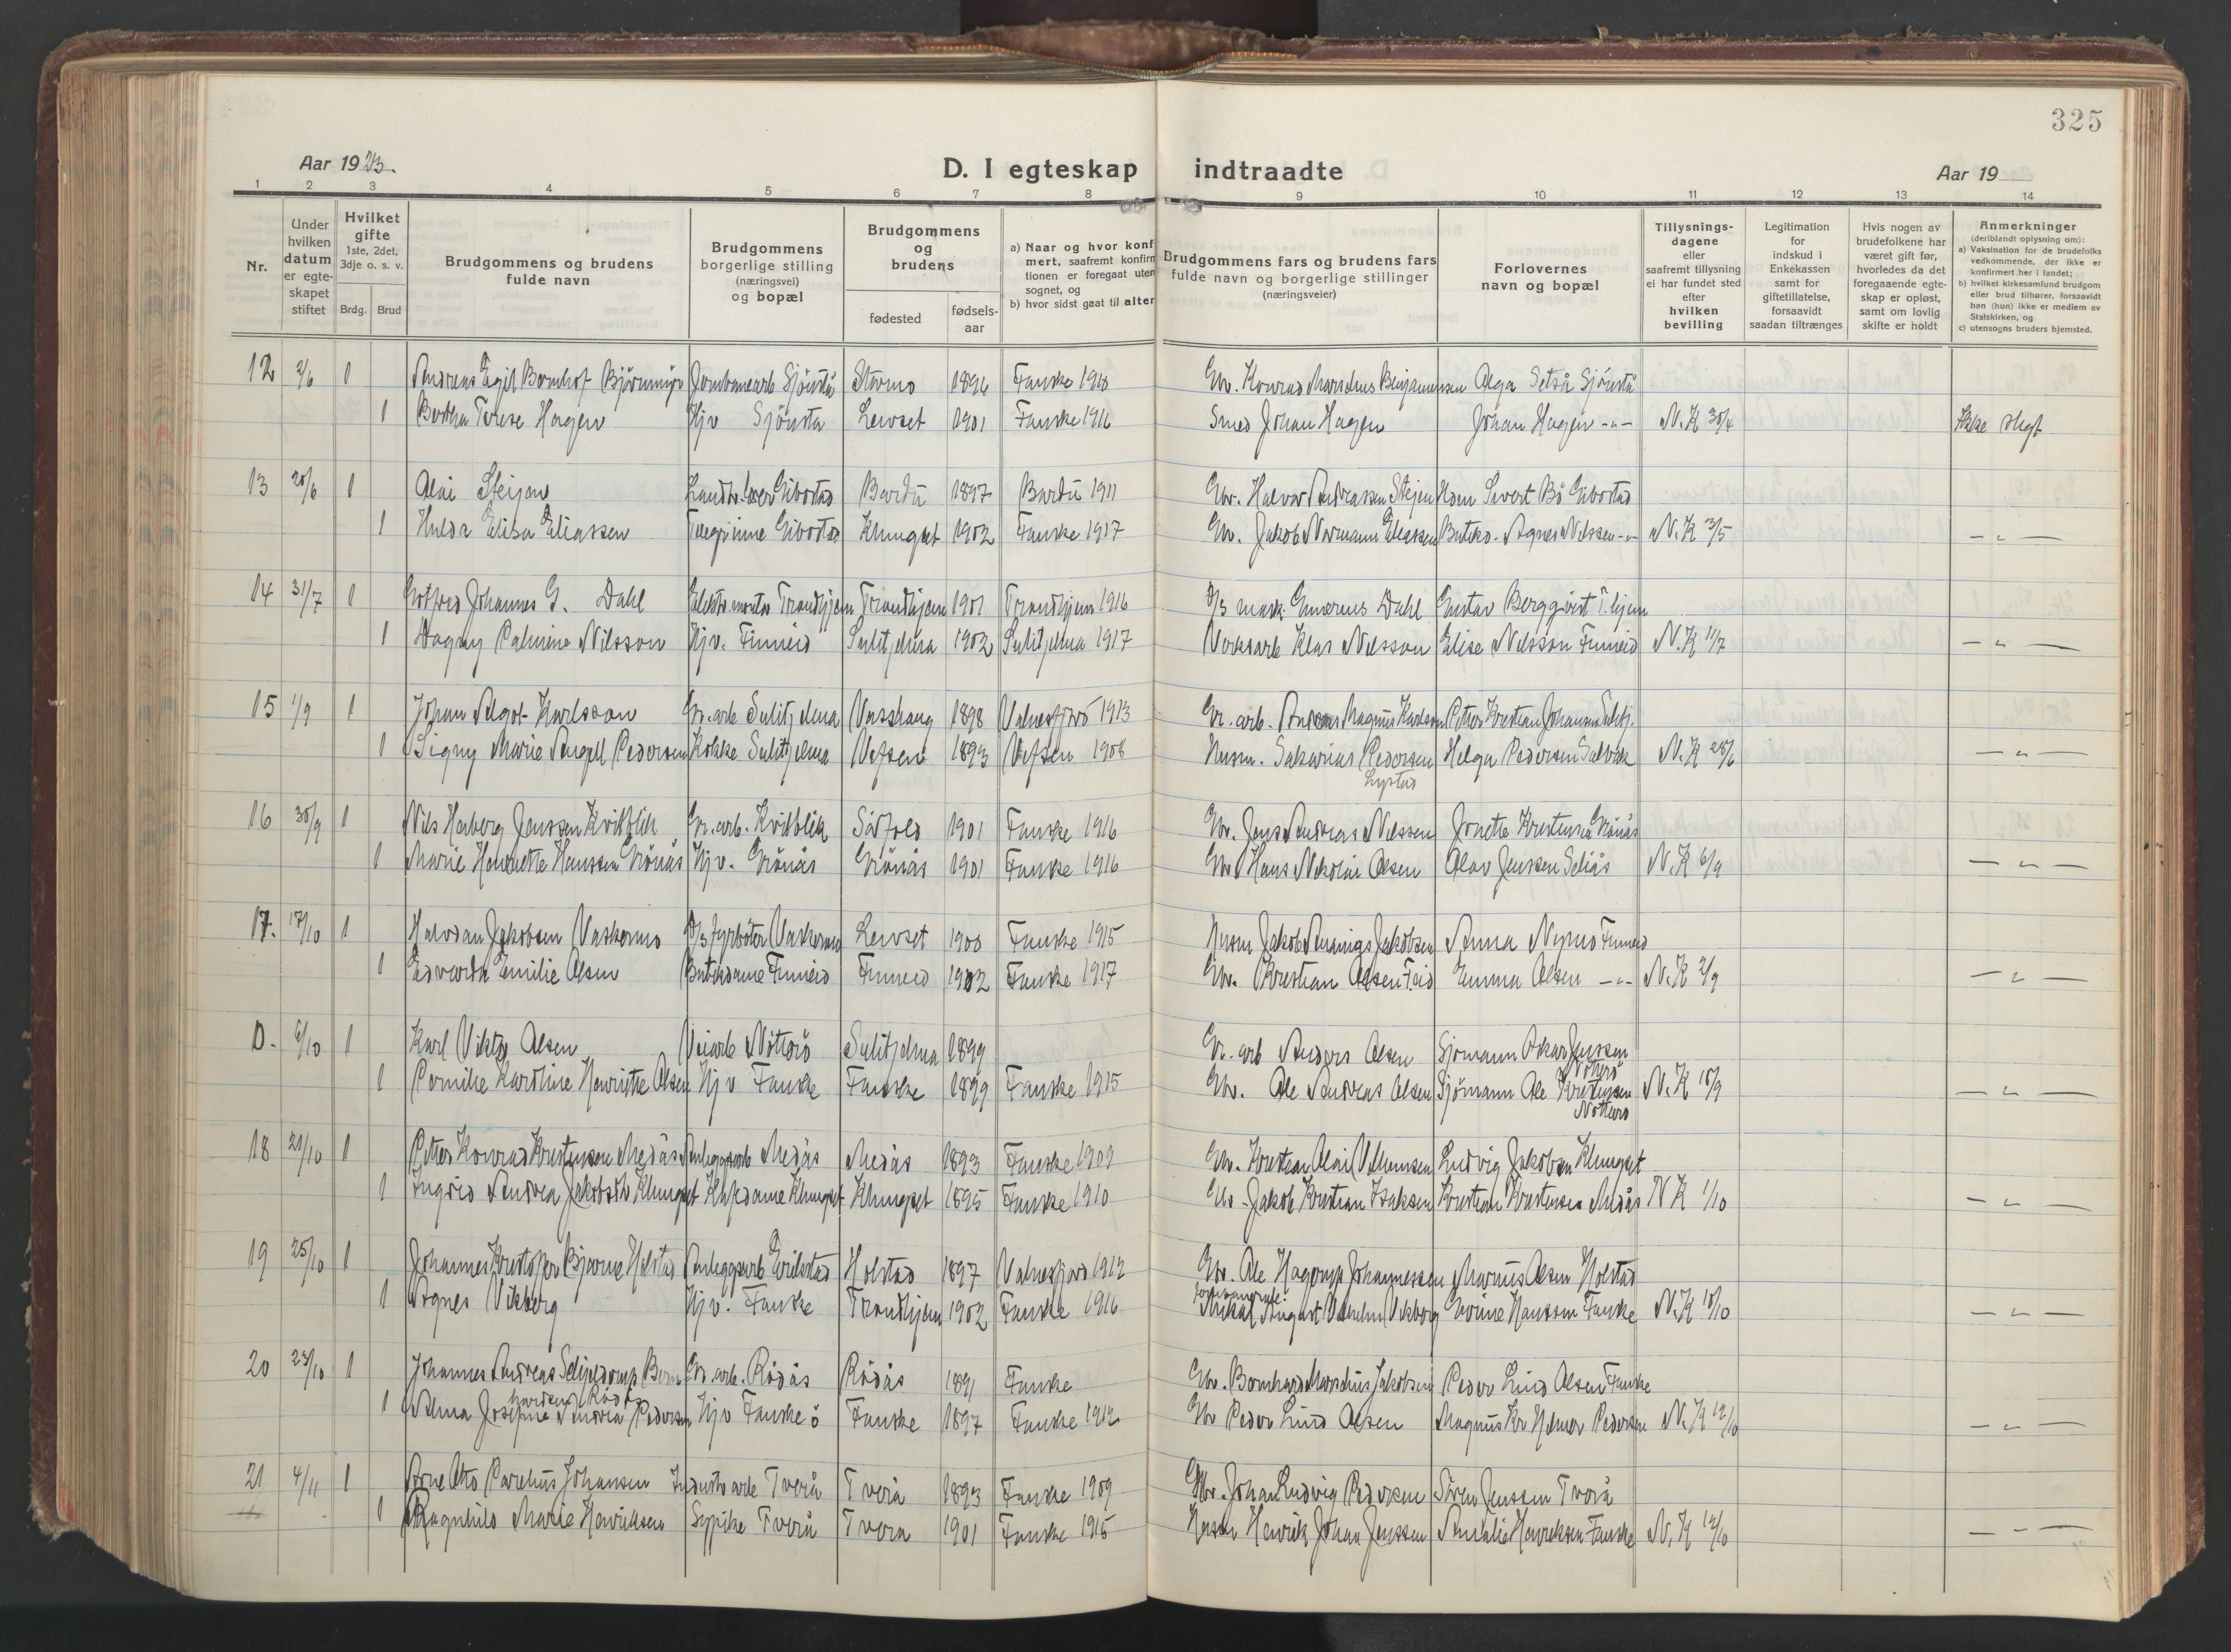 325
Aar 1923.
D. I egteskap indtraadte
Aar 19
1 2 3 4 5 6 7 8 9 10 11 12 13 14
Nr.
Under hvilken datum er egteskapet stiftet
Hvilket gifte 1ste, 2det, 3dje o. s. v.
Brdg. Brud
Brudgommens og brudens fulde navn
Brudgommens borgerlige stilling (næringsvei) og bopæl
Brudgommens og brudens
fødested
fødsels-aar
a) Naar og hvor konf mert, saafremt konfirm tionen er foregaat uten sognet, og
b) hvor sidst gaat til alter
Brudgommens fars og brudens fars fulde navn og borgerlige stillinger (næringsveier)
Forlovernes navn og bopæl
Tillysnings-dagene eller saafremt tillysning ei har fundet sted efter hvilken bevilling
Legitimation for indskud i Enkekassen samt for giftetillatelse, forsaavidt saadan tiltrænges
Hvis nogen av brudefolkene har været gift før, hvorledes da det foregaaende egte-skap er opløst, samt om lovlig skifte er holdt
Anmerkninger (deriblandt oplysning om):
a) Vaksination for de brudefolks vedkommende, der ikke er konfirmert her i landet;
b) hvilket kirkesamfund brudgom eller brud tilhører, forsaavidt han (hun) ikke er medlem av Statskirken, og
c) utensogns bruders hjemsted.
12 2/6 1 Andreas Egil Bernhof Jernbanearb Sjönstå Stormo 1896 Fauske 1910 Gbr. Konrad Marselius Benjaminsen Olga Setså Sjönstå
1 Bertha Terese Hagen Hjv Sjönsta Leivset 1901 Fauske 1916 Smed Johan Hagen Johan Hagen -"- N.K 30/4 Ikke slegt
13 20/6 1 Olai Steijen Gibostad Bardu 1897 Bardu 1911 Gbr. Halvor Andreassen Steijen Sivert Bö Gibostad
1 Hulda Elisa Eliassen Gibostad Klungset 1902 Fauske 1917 Gbr. Jakob Normann Eliassen Agnes Nilssen -"- N.K 3/5 - " -
14 31/7 1 Gotfred Johannes G. Dahl Elektr. montör Trondhjem Trondhjem 1901 Trondhjem 1916 Dahl Gustav Bergqvist T.hjem
1 Dagny Palmine Nilsson Hjv. Finneid Sulitjelma 1902 Sulitjelma 1917 Verksarb Klas Nilsson Elise Nilsson Finneid N.K 11/7 - " -
15 1/9 1 Johan Algot Karlsson Gr.arb Sulitjelma 1898 Valnesfjord 1913 Gr. arb. Magnus Karlsson Petter Kristian Johansen Sulitj.
1 Signy Marie Angell Pedersen Kokke Sulitjelma Vefsen 1893 Vefsen 1908 Husm. Sakarias Pedersen Lystad Helga Pedersen N.K 28/6 - " -
16 30/9 1 Nils Herberg Janssen Kvikblik Gr. arb. Kvikblik Sörfold 1901 Fauske 1916 Gbr. Jens Andreas Nilssen Jonette Kristensen Grönås
1 Marie Henriette Hanssen Grönås Hjv. Grönås Grönås 1901 Fauske 1916 Gbr Hans Nikolai Olsen Olav Jenssen N.K 6/9 - " -
17. 17/10 1 Halvdan Jakobsen Vaskermo D/S fyrböter Vaskermo Leivset 1900 Fauske 1915 Husm Jakob Jakobsen Anna Finneid
1 Edvarda Emilie Olsen Butikdame Finneid Finneid 1902 Fauske 1917 Gbr. Kristian Olsen F.eid Emma Olsen -"- N.K 2/9 - " -
D. 6/10 1 Karl Viktor Olsen Veiarb Nötterö Sulitjelma 1899 Gr. arb Anders Olsen Sjömann Oskar Jenssen Nötterö
1 Pernille Karoline Henriette Olsen Hjv Fauske Fauske 1899 Fauske 1915 Gbr. Ole Andreas Olsen Sjömann Ole Kristensen Nötterö N.K 18/9 - " -
18 21/10 1 Petter Konrad Kristensen Medås Anleggsarb Medås Medås 1893 Fauske 1909 Gbr. Kristian Olai Ludvig Jakobsen Klungset
1 Ingrid Andrea Jakobsen Klungset Klungset Klungset 1895 Fauske 1910 Gbr. Jakob Kristian Isaksen Kristian Kristensen Medås N K 1/10 - " -
19 25/10 1 Johannes Kristoffer Bjarne Holstad Anleggsarb Holstad 1897 Valnesfjord 1912 Gbr. Ole Hagerup Johannessen Marius Olsen Holstad
1 Agnes Vikberg Hjv. Fauske Trondhjem 1902 Fauske 1916 August Vilhelm Vikberg Hanssen Fauske N.K 10/10 - " -
20 23/10 1 Johannes Andreas Seljedrup Gr. arb. Rödås Rödås 1891 Fauske Gbr. Bernhard Marselius Jakobsen Peder Lind Olsen Fauske
1 Wilma Josefine Andrea Pedersen Hjv Fauske ö Fauske 1897 Fauske 1912 Gbr Peder Lind Olsen Magnus Kr Helmer Pedersen N.K 12/10 - " -
21 4/11 1 Arne Otto Parelius Johansen Industriarb Tverå Tverå 1893 Fauske 1909 Gbr. Johan Ludvig Pedersen Sören Jenssen Tverå
1 Ragnhild Marie Henriksen Sypike Tverå Tverå 1901 Fauske 1915 Husm Henrik Johan Jenssen Henriksen Fauske N.K 12/10 - " -